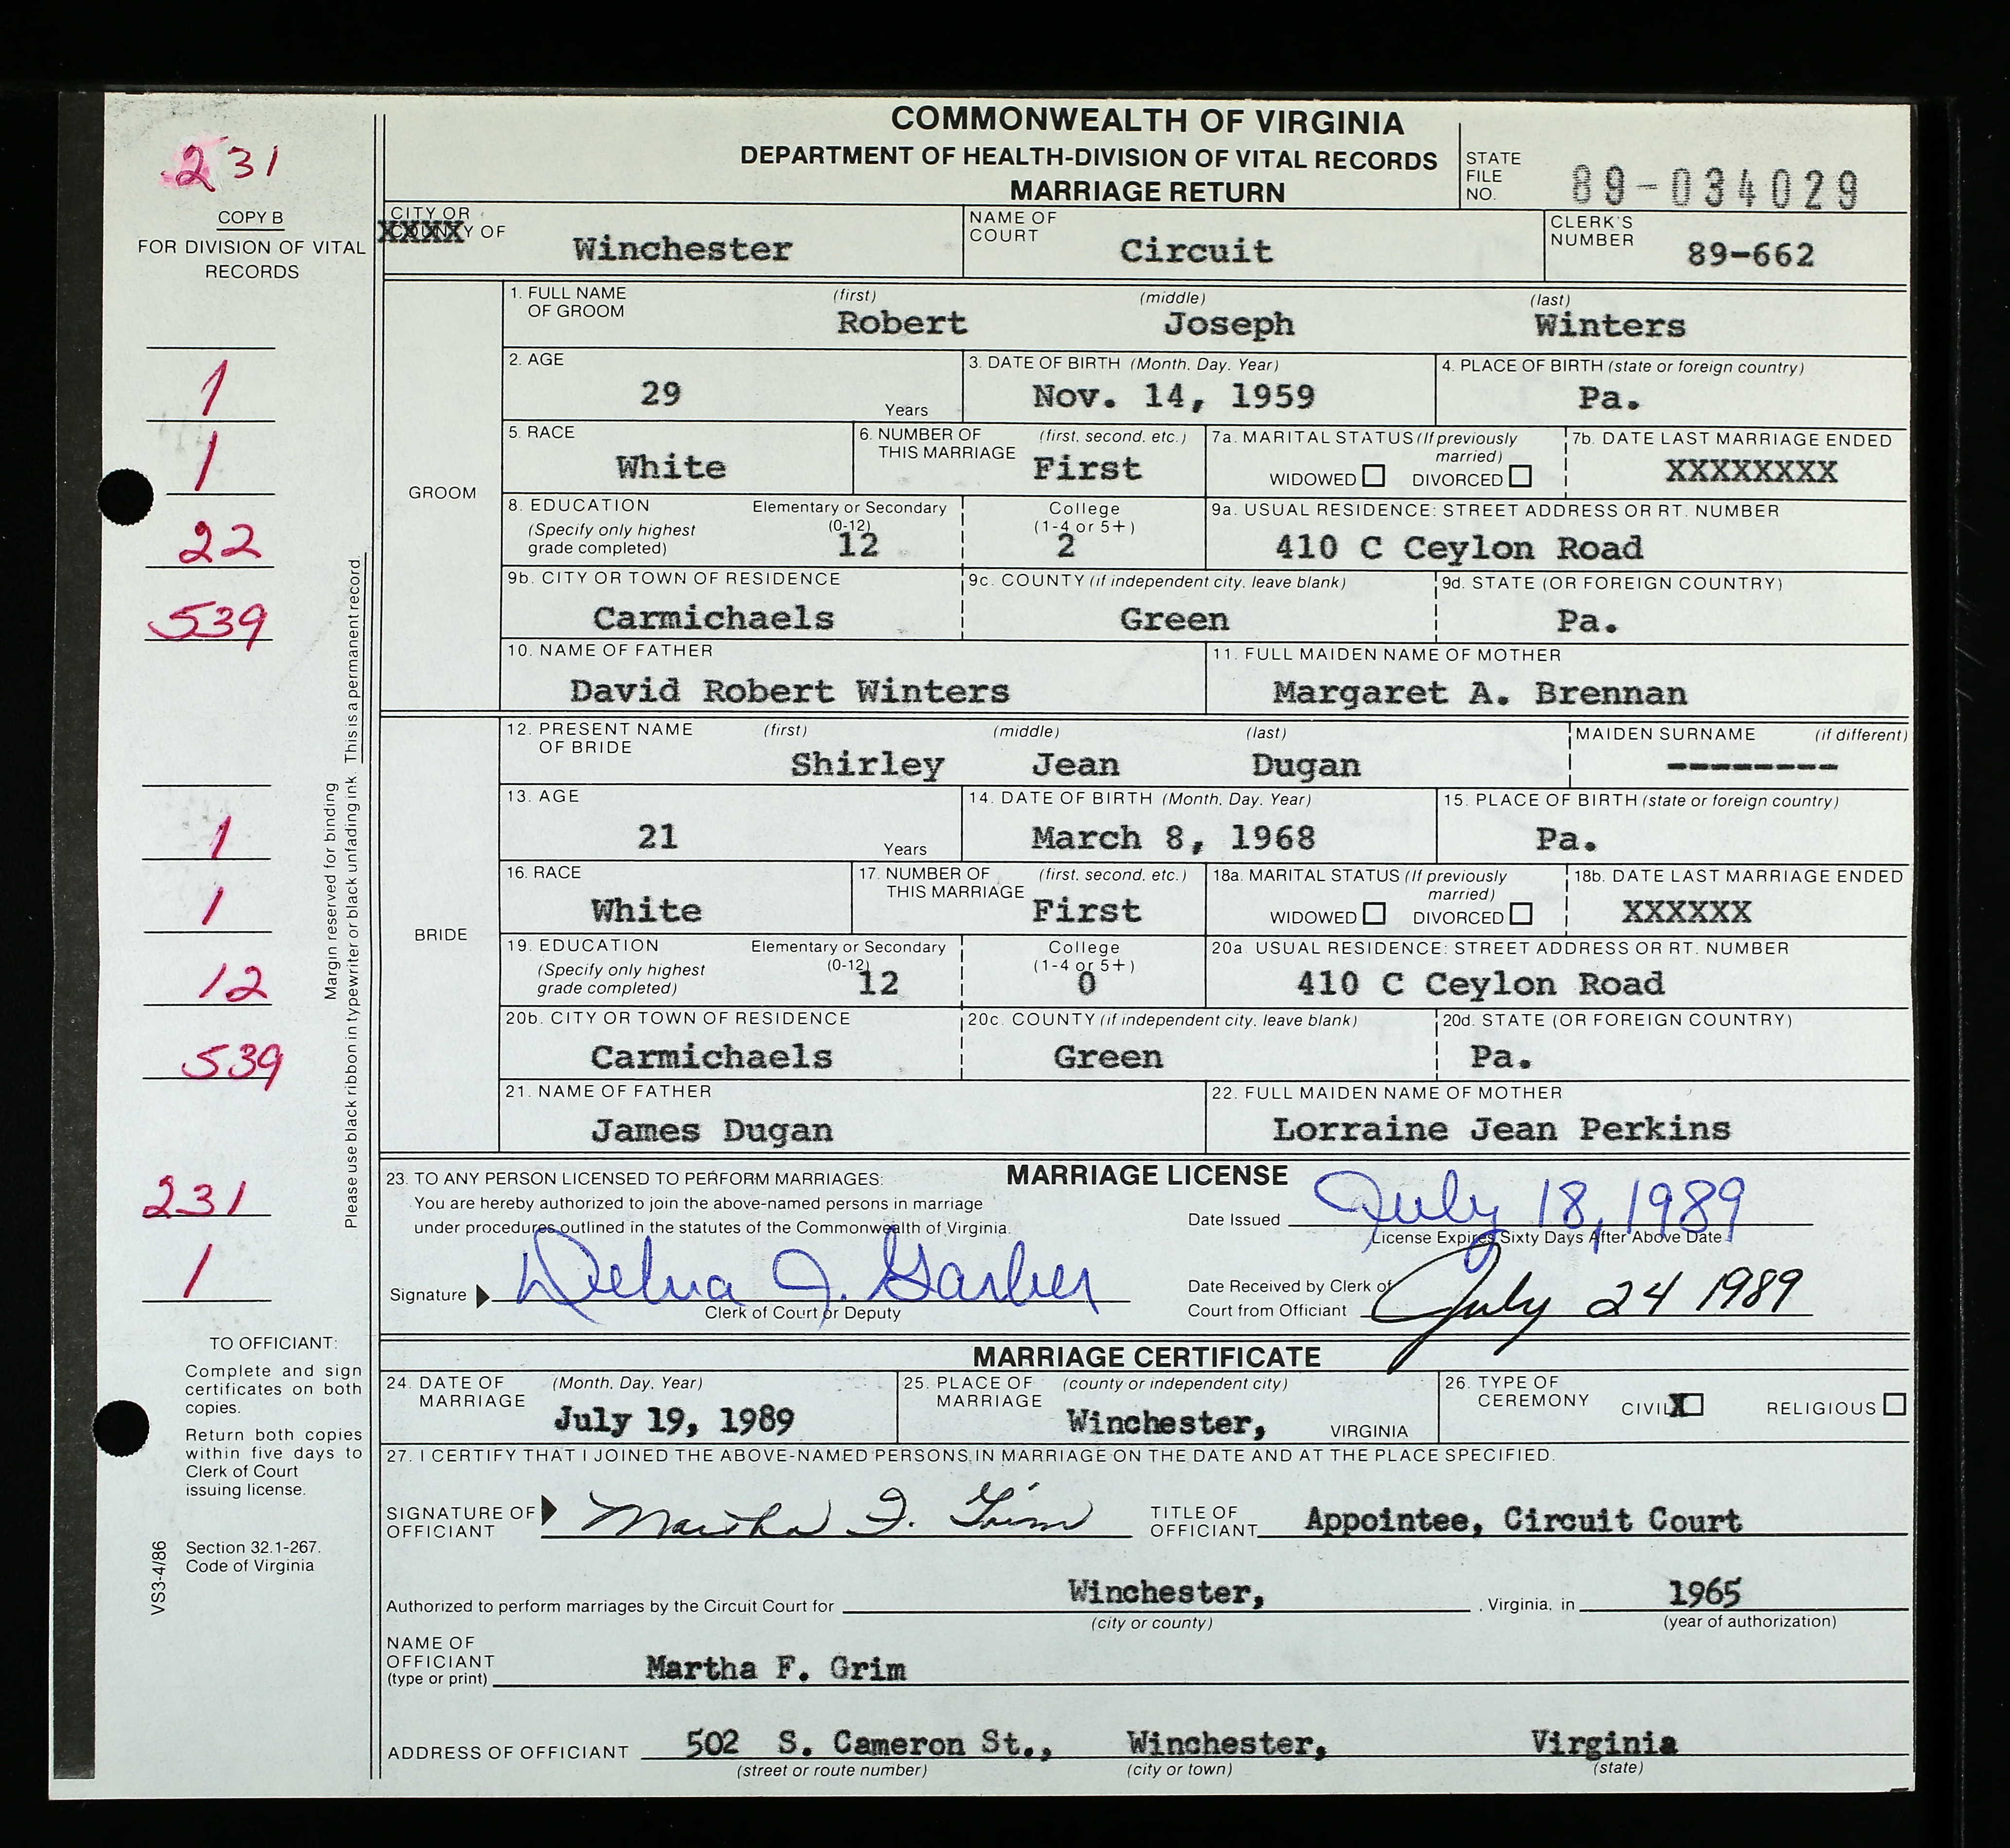 COMMONWEALTH OF VIRGINIA
DEPARTMENT OF HEALTH-DIVISION OF VITAL RECORDS
MARRIAGE RETURN
STATE FILE NO. 89-034029
231
COPY B
FOR DIVISION OF VITAL RECORDS
CITY OR COUNTY OF XXXX Winchester
NAME OF COURT Circuit
CLERK'S NUMBER 89-662
GROOM
1. FULL NAME OF GROOM (first) Robert (middle) Joseph (last) Winters
2. AGE 29 Years
3. DATE OF BIRTH (Month, Day, Year) Nov. 14, 1959
4. PLACE OF BIRTH (state or foreign country) Pa.
5. RACE White
6. NUMBER OF THIS MARRIAGE (first, second, etc.) First
7a. MARITAL STATUS (If previously married) WIDOWED DIVORCED
7b. DATE LAST MARRIAGE ENDED XXXXXXXX
8. EDUCATION (Specify only highest grade completed) Elementary or Secondary (0-12) 12
College (1-4 or 5+) 2
9a. USUAL RESIDENCE: STREET ADDRESS OR RT. NUMBER 410 C Ceylon Road
9b. CITY OR TOWN OF RESIDENCE Carmichaels
9c. COUNTY (if independent city, leave blank) Green
9d. STATE (OR FOREIGN COUNTRY) Pa.
10. NAME OF FATHER David Robert Winters
11. FULL MAIDEN NAME OF MOTHER Margaret A. Brennan
BRIDE
12. PRESENT NAME OF BRIDE (first) Shirley (middle) Jean (last) Dugan
MAIDEN SURNAME (if different) --------
13. AGE 21 Years
14. DATE OF BIRTH (Month, Day, Year) March 8, 1968
15. PLACE OF BIRTH (state or foreign country) Pa.
16. RACE White
17. NUMBER OF THIS MARRIAGE (first, second, etc.) First
18a. MARITAL STATUS (If previously married) WIDOWED DIVORCED
18b. DATE LAST MARRIAGE ENDED XXXXXX
19. EDUCATION (Specify only highest grade completed) Elementary or Secondary (0-12) 12
College (1-4 or 5+) 0
20a USUAL RESIDENCE: STREET ADDRESS OR RT. NUMBER 410 C Ceylon Road
20b. CITY OR TOWN OF RESIDENCE Carmichaels
20c. COUNTY (if independent city, leave blank) Green
20d. STATE (OR FOREIGN COUNTRY) Pa.
21. NAME OF FATHER James Dugan
22. FULL MAIDEN NAME OF MOTHER Lorraine Jean Perkins
1
1
22
539
1
1
12
539
231
1
Margin reserved for binding
Please use black ribbon in typewriter or black unfading ink. This is a permanent record.
MARRIAGE LICENSE
23. TO ANY PERSON LICENSED TO PERFORM MARRIAGES:
You are hereby authorized to join the above-named persons in marriage
under procedures outlined in the statutes of the Commonwealth of Virginia.
Date Issued July 18, 1989
License Expires Sixty Days After Above Date
Signature Delma J. Garber
Clerk of Court or Deputy
Date Received by Clerk of Court from Officiant July 24 1989
MARRIAGE CERTIFICATE
24. DATE OF MARRIAGE (Month, Day, Year) July 19, 1989
25. PLACE OF MARRIAGE (county or independent city) Winchester, VIRGINIA
26. TYPE OF CEREMONY CIVIL X RELIGIOUS
27. I CERTIFY THAT I JOINED THE ABOVE-NAMED PERSONS IN MARRIAGE ON THE DATE AND AT THE PLACE SPECIFIED.
SIGNATURE OF OFFICIANT Martha F. Grim
TITLE OF OFFICIANT Appointee, Circuit Court
Authorized to perform marriages by the Circuit Court for Winchester, , Virginia, in 1965
(city or county) (year of authorization)
NAME OF OFFICIANT (type or print) Martha F. Grim
ADDRESS OF OFFICIANT 502 S. Cameron St., Winchester, Virginia
(street or route number) (city or town) (state)
TO OFFICIANT:
Complete and sign
certificates on both
copies.
Return both copies
within five days to
Clerk of Court
issuing license.
Section 32.1-267.
Code of Virginia
VS3-4/86